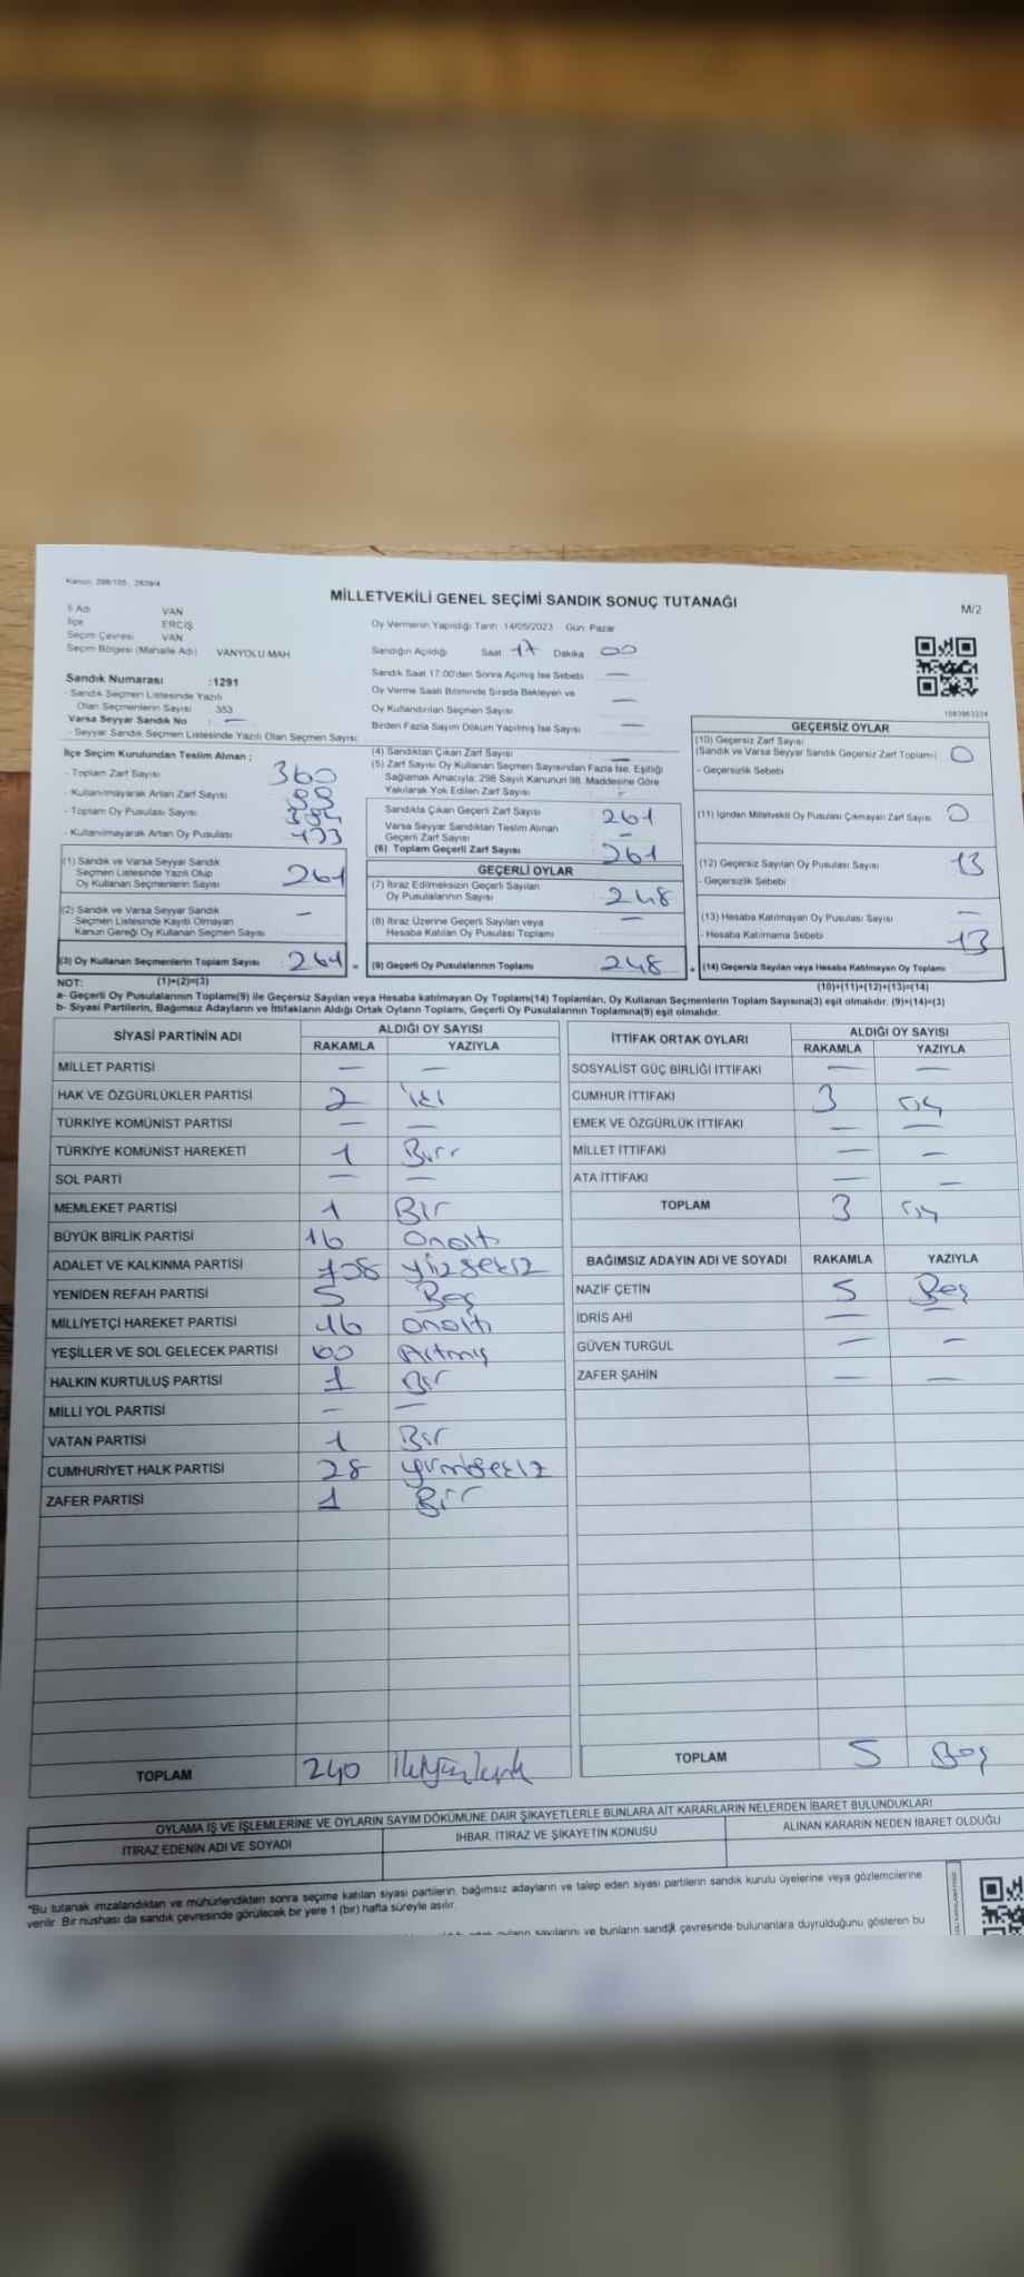 Kanun: 298/105, 2839/4
MİLLETVEKİLİ GENEL SEÇİMİ SANDIK SONUÇ TUTANAĞI
M/2
İl Adı VAN
İlçe ERCİŞ
Seçim Çevresi VAN
Seçim Bölgesi (Mahalle Adı) VANYOLU MAH
Oy Vermenin Yapıldığı Tarih: 14/05/2023 Gün: Pazar
Sandığın Açıldığı Saat 17 Dakika 00
Sandık Saat 17:00'den Sonra Açılmış İse Sebebi —
Oy Verme Saati Bitiminde Sırada Bekleyen ve
Oy Kullandırılan Seçmen Sayısı —
Birden Fazla Sayım Döküm Yapılmış İse Sayısı —
Sandık Numarası :1291
- Sandık Seçmen Listesinde Yazılı
Olan Seçmenlerin Sayısı 353
Varsa Seyyar Sandık No : —
- Seyyar Sandık Seçmen Listesinde Yazılı Olan Seçmen Sayısı:
İlçe Seçim Kurulundan Teslim Alınan ;
- Toplam Zarf Sayısı 360
- Kullanılmayarak Artan Zarf Sayısı
- Toplam Oy Pusulası Sayısı
- Kullanılmayarak Artan Oy Pusulası 133
(1) Sandık ve Varsa Seyyar Sandık
Seçmen Listesinde Yazılı Olup
Oy Kullanan Seçmenlerin Sayısı 261
(2) Sandık ve Varsa Seyyar Sandık
Seçmen Listesinde Kayıtlı Olmayan
Kanun Gereği Oy Kullanan Seçmen Sayısı —
(3) Oy Kullanan Seçmenlerin Toplam Sayısı 261 =
(1)+(2)=(3)
(4) Sandıktan Çıkan Zarf Sayısı
(5) Zarf Sayısı Oy Kullanan Seçmen Sayısından Fazla İse, Eşitliği
Sağlamak Amacıyla; 298 Sayılı Kanunun 98. Maddesine Göre
Yakılarak Yok Edilen Zarf Sayısı -
Sandıkta Çıkan Geçerli Zarf Sayısı 261
Varsa Seyyar Sandıktan Teslim Alınan
Geçerli Zarf Sayısı -
(6) Toplam Geçerli Zarf Sayısı 261
GEÇERLİ OYLAR
(7) İtiraz Edilmeksizin Geçerli Sayılan
Oy Pusulalarının Sayısı 248
(8) İtiraz Üzerine Geçerli Sayılan veya
Hesaba Katılan Oy Pusulası Toplamı —
(9) Geçerli Oy Pusulalarının Toplamı 248 +
1083963334
GEÇERSİZ OYLAR
(10) Geçersiz Zarf Sayısı
(Sandık ve Varsa Seyyar Sandık Geçersiz Zarf Toplamı) 0
- Geçersizlik Sebebi
(11) İçinden Milletvekili Oy Pusulası Çıkmayan Zarf Sayısı 0
(12) Geçersiz Sayılan Oy Pusulası Sayısı 13
- Geçersizlik Sebebi
(13) Hesaba Katılmayan Oy Pusulası Sayısı —
- Hesaba Katılmama Sebebi
(14) Geçersiz Sayılan veya Hesaba Katılmayan Oy Toplamı 13
(10)+(11)+(12)+(13)=(14)
NOT:
a- Geçerli Oy Pusulalarının Toplamı(9) ile Geçersiz Sayılan veya Hesaba katılmayan Oy Toplamı(14) Toplamları, Oy Kullanan Seçmenlerin Toplam Sayısına(3) eşit olmalıdır. (9)+(14)=(3)
b- Siyasi Partilerin, Bağımsız Adayların ve İttifakların Aldığı Ortak Oyların Toplamı, Geçerli Oy Pusulalarının Toplamına(9) eşit olmalıdır.
SİYASİ PARTİNİN ADI ALDIĞI OY SAYISI
RAKAMLA YAZIYLA
MİLLET PARTİSİ — —
HAK VE ÖZGÜRLÜKLER PARTİSİ 2 iki
TÜRKİYE KOMÜNİST PARTİSİ — —
TÜRKİYE KOMÜNİST HAREKETİ 1 Bir
SOL PARTİ — —
MEMLEKET PARTİSİ 1 Bir
BÜYÜK BİRLİK PARTİSİ 16 Onaltı
ADALET VE KALKINMA PARTİSİ 108 yüzsekiz
YENİDEN REFAH PARTİSİ 5 Beş
MİLLİYETÇİ HAREKET PARTİSİ 16 Onaltı
YEŞİLLER VE SOL GELECEK PARTİSİ 60 Altmış
HALKIN KURTULUŞ PARTİSİ 1 Bir
MİLLİ YOL PARTİSİ — —
VATAN PARTİSİ 1 Bir
CUMHURİYET HALK PARTİSİ 28 yirmisekiz
ZAFER PARTİSİ 1 Bir
TOPLAM 240 ikiyüzkırk
İTTİFAK ORTAK OYLARI ALDIĞI OY SAYISI
RAKAMLA YAZIYLA
SOSYALİST GÜÇ BİRLİĞİ İTTİFAKI — —
CUMHUR İTTİFAKI 3 üç
EMEK VE ÖZGÜRLÜK İTTİFAKI — —
MİLLET İTTİFAKI — —
ATA İTTİFAKI — —
TOPLAM 3 üç
BAĞIMSIZ ADAYIN ADI VE SOYADI RAKAMLA YAZIYLA
NAZİF ÇETİN 5 Beş
İDRİS AHİ — —
GÜVEN TURGUL — —
ZAFER ŞAHİN — —
TOPLAM 5 Beş
OYLAMA İŞ VE İŞLEMLERİNE VE OYLARIN SAYIM DÖKÜMÜNE DAİR ŞİKAYETLERLE BUNLARA AİT KARARLARIN NELERDEN İBARET BULUNDUKLARI
İTİRAZ EDENİN ADI VE SOYADI İHBAR, İTİRAZ VE ŞİKAYETİN KONUSU ALINAN KARARIN NEDEN İBARET OLDUĞU
"Bu tutanak imzalandıktan ve mühürlendikten sonra seçime katılan siyasi partilerin, bağımsız adayların ve talep eden siyasi partilerin sandık kurulu üyelerine veya gözlemcilerine
verilir. Bir nüshası da sandık çevresinde görülecek bir yere 1 (bir) hafta süreyle asılır.
oyların sayılarını ve bunların sandık çevresinde bulunanlara duyrulduğunu gösteren bu